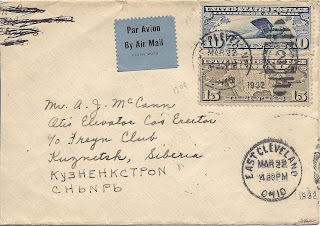 Par Avion
By Air Mail
UNITED STATES POSTAGE
10
15 15
MAR 22
1932
Mr. A. J. McCann
Otis Elevator Co's Erector
℅ Freyn Club
Kuznetsk, Siberia
КУЗНЕНКСТРОП
СНЬNРЬ
EAST CLEVELAND
MAR 22
4:30 PM
OHIO
1932